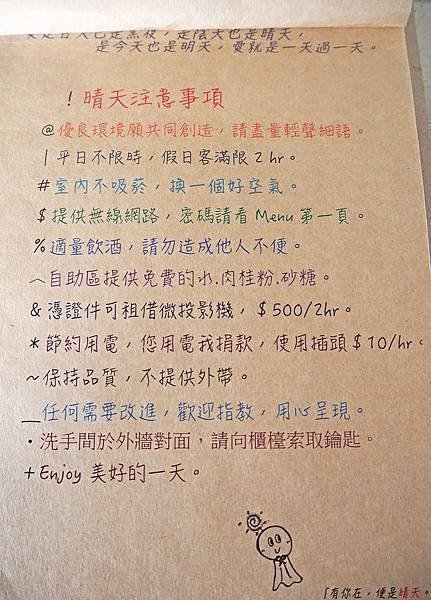 愛是白天也是黑夜，是陰天也是晴天，
是今天也是明天，愛就是一天過一天。
！晴天注意事項
@優良環境願共同創造，請盡量輕聲細語。
|平日不限時，假日客滿限2hr。
#室內不吸菸，換一個好空氣。
$提供無線網路，密碼請看Menu第一頁。
%適量飲酒，請勿造成他人不便。
︿自助區提供免費的水.肉桂粉.砂糖。
&憑證件可租借微投影機，$500/2hr。
*節約用電，您用電我捐款，使用插頭$10/hr。
~保持品質，不提供外帶。
＿任何需要改進，歡迎指教，用心呈現。
·洗手間於外牆對面，請向櫃檯索取鑰匙。
+Enjoy 美好的一天。
「有你在，便是晴天。